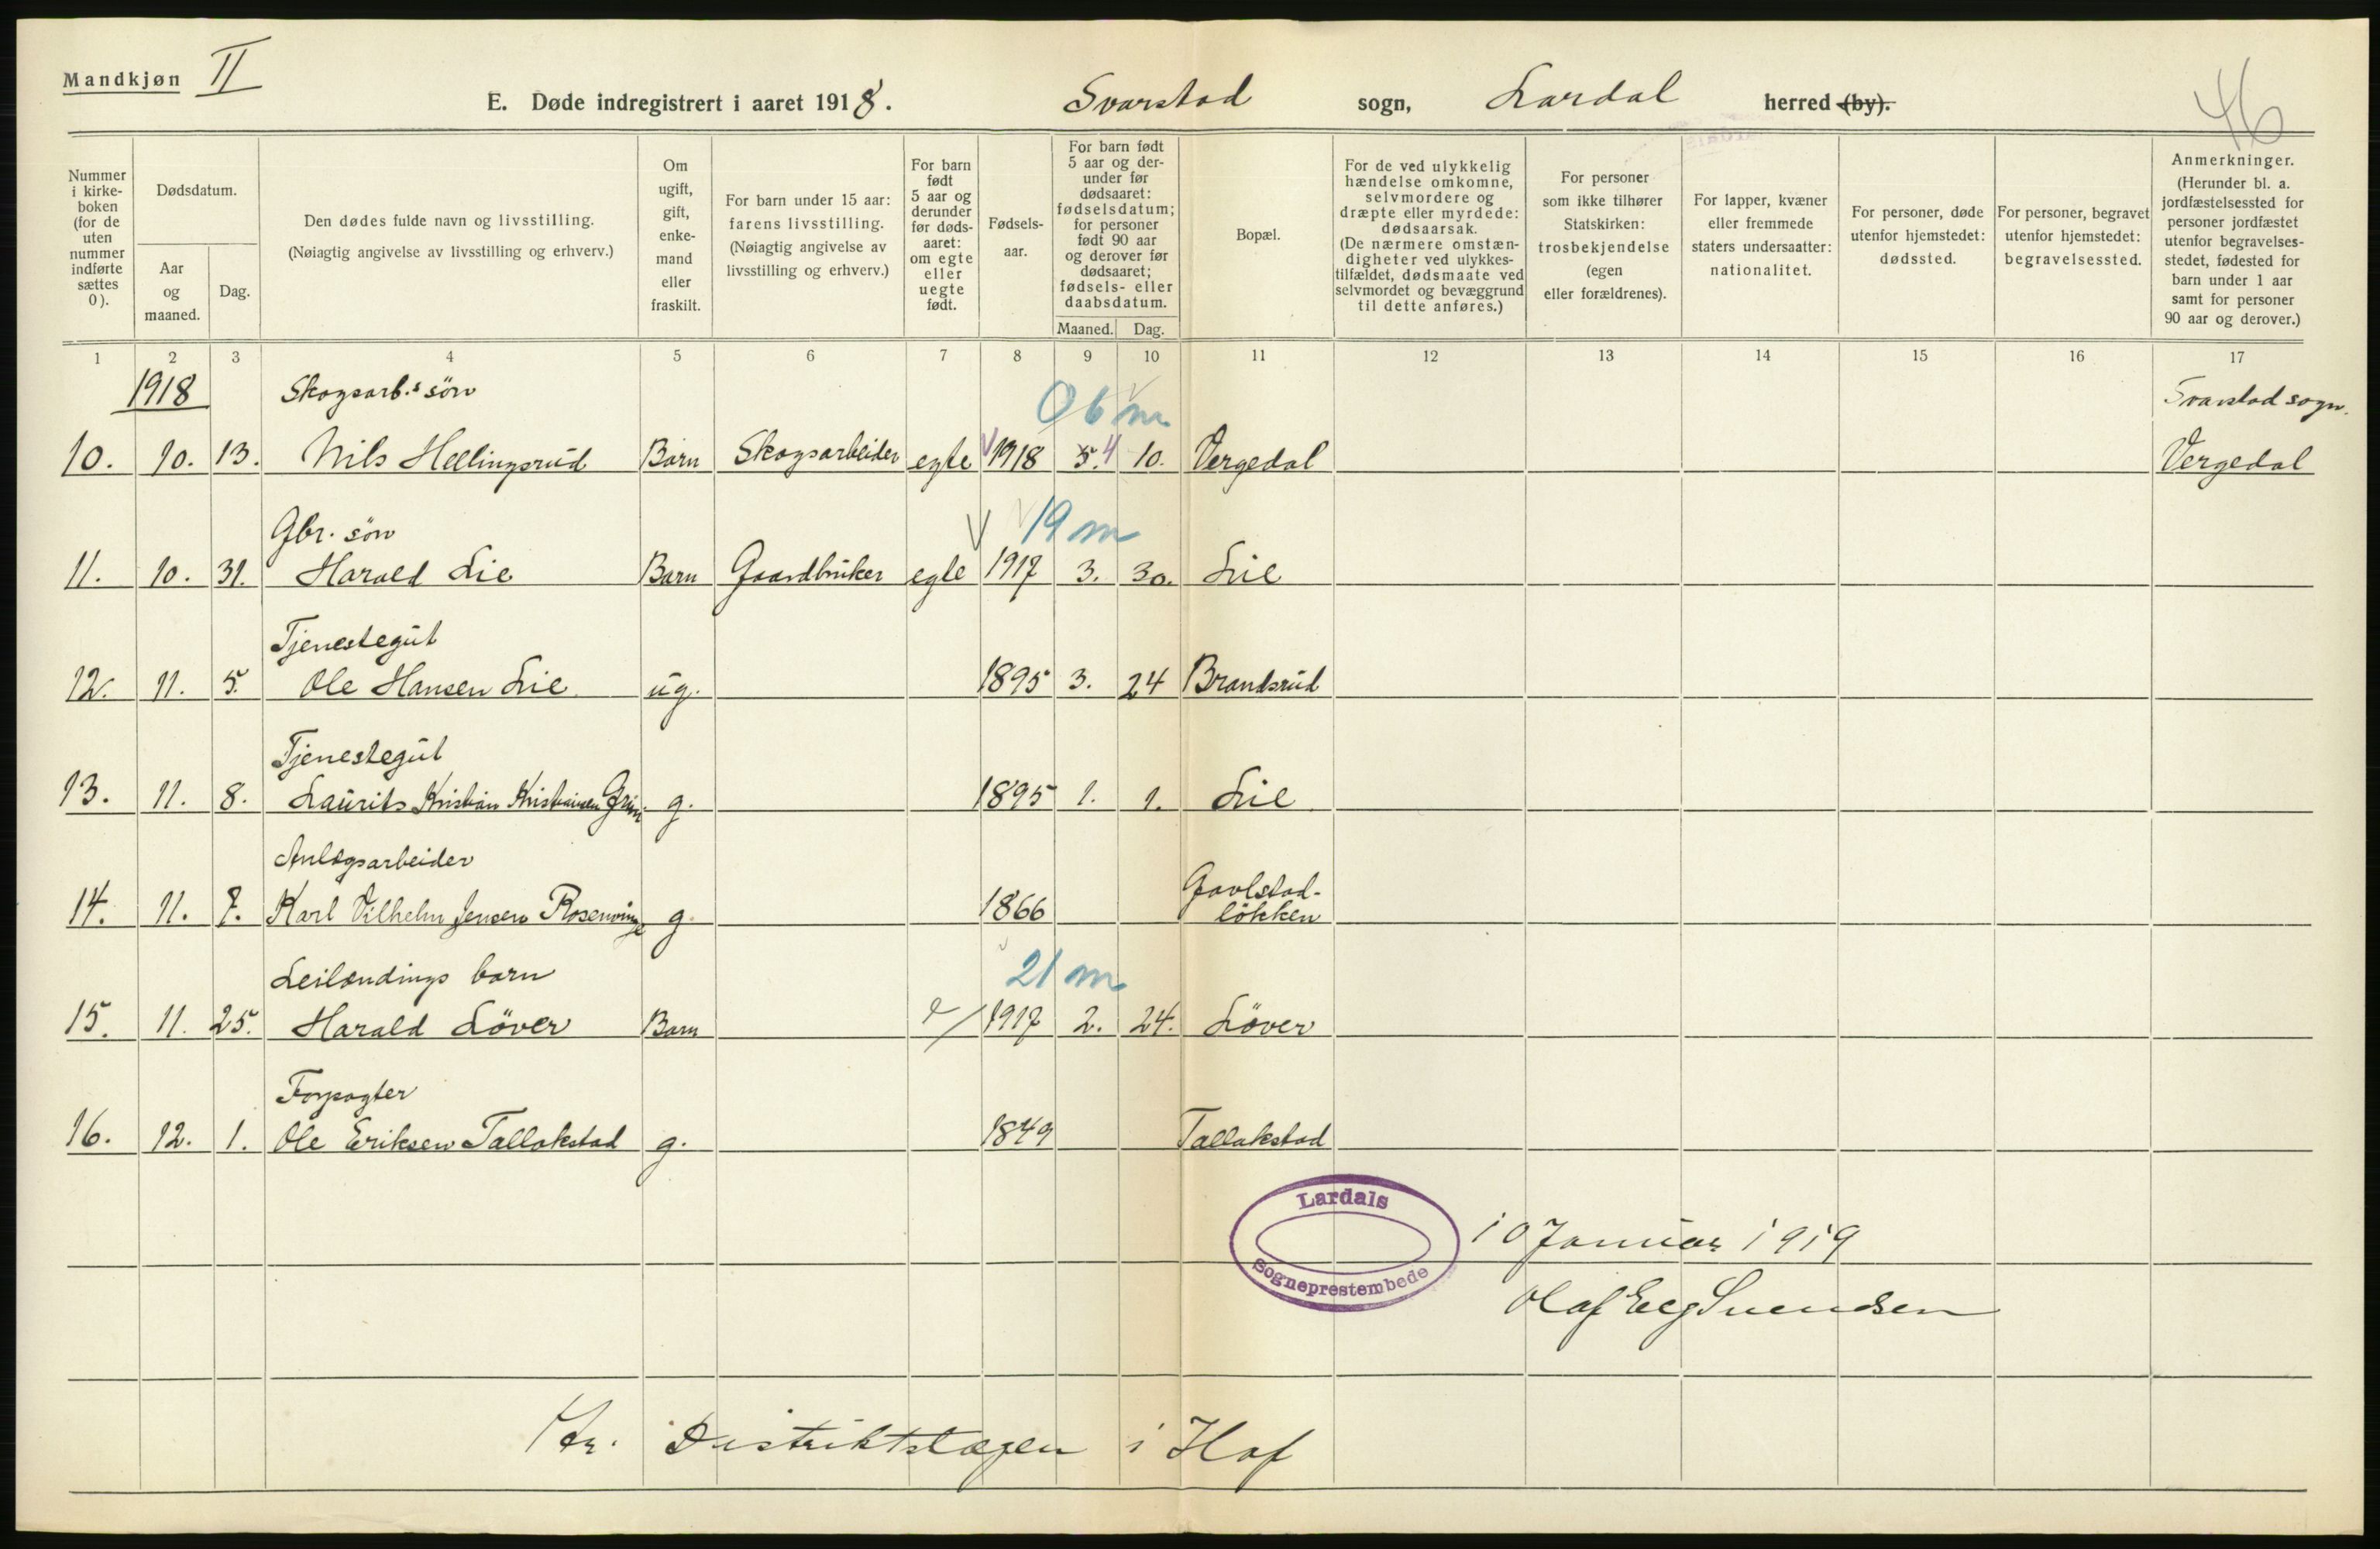 Mandkjøn II
E. Døde indregistrert i aaret 1918. Svarstad sogn, Lardal herred (by).
46
Nummer i kirke-boken (for de uten nummer indførte sættes 0).
Dødsdatum.
Aar og maaned.
Dag.
Den dødes fulde navn og livsstilling.
(Nøiagtig angivelse av livsstilling og erhverv.)
Om ugift, gift, enke-mand eller fraskilt.
For barn under 15 aar: farens livsstilling.
(Nøiagtig angivelse av livsstilling og erhverv.)
For barn født 5 aar og derunder før døds-aaret: om egte eller uegte født.
Fødsels-aar.
For barn født 5 aar og der-under før dødsaaret: fødselsdatum; for personer født 90 aar og derover før dødsaaret; fødsels- eller daabsdatum.
Maaned. Dag.
Bopæl.
For de ved ulykkelig hændelse omkomne, selvmordere og dræpte eller myrdede: dødsaarsak.
(De nærmere omstæn-digheter ved ulykkes-tilfældet, dødsmaate ved selvmordet og bevæggrund til dette anføres.)
For personer som ikke tilhører Statskirken: trosbekjendelse (egen eller forældrenes).
For lapper, kvæner eller fremmede staters undersaatter: nationalitet.
For personer, døde utenfor hjemstedet: dødssted.
For personer, begravet utenfor hjemstedet: begravelsessted.
Anmerkninger.
(Herunder bl. a. jordfæstelsessted for personer jordfæstet utenfor begravelses-stedet, fødested for barn under 1 aar samt for personer 90 aar og derover.)
1 2 3 4 5 6 7 8 9 10 11 12 13 14 15 16 17
1918 Skogsarb.s søn 06 m Svarstad sogn.
10. 10. 13. Nils Hellingsrud Barn Skogsarbeider egte 1918 5. 4 10. Vergedal Vergedal
Gbr. søn 19 m
11. 10. 31. Harald Lie Barn Gaardbruker egte 1917 3. 30. Lie
Tjenestegut
12. 11. 5. Ole Hansen Lie ug. 1895 3. 24 Brandsrud
Tjenestegut
13. 11. 8. Laurits Kristian Kristiansen Grin g. 1895 1. 1. Lie
Anlægsarbeider
14. 11. 7. Karl Vilhelm Jensen Rosenvinge g. 1866 Gavlstad-løkken
Leilændings barn 21 m
15. 11. 25. Harald Löver Barn e 1917 2. 24. Löver
Forpagter
16. 12. 1. Ole Eriksen Tallakstad g. 1849 Tallakstad
Lardals
Sogneprestembede
10 Januar 1919
Olaf Eeg Svendsen
Hr. Distriktslægen i Hof